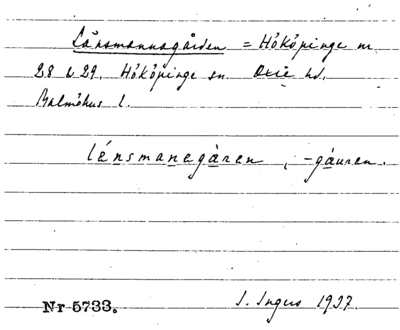 Länsmannagården = Hököpinge nr
28 & 29. Hököpinge sn. Oxie hd.
Malmöhus l.
lénsmanegåren, -gåuren.
Nr 5733. I. Ingers 1937.